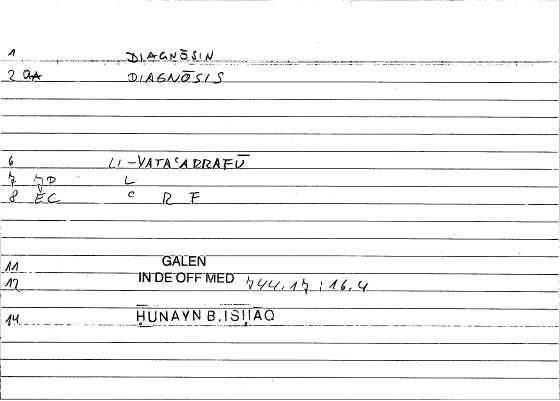 1 DIAGNŌSIN
2 DIAGNŌSIS
6 LI-YATAʿARRAFŪ
7 JD L
8 EC ʿ R F
11 GALEN
12 IN DE OFF MED 744.17 : 16.4
14 ḤUNAYN B. ISḤĀQ